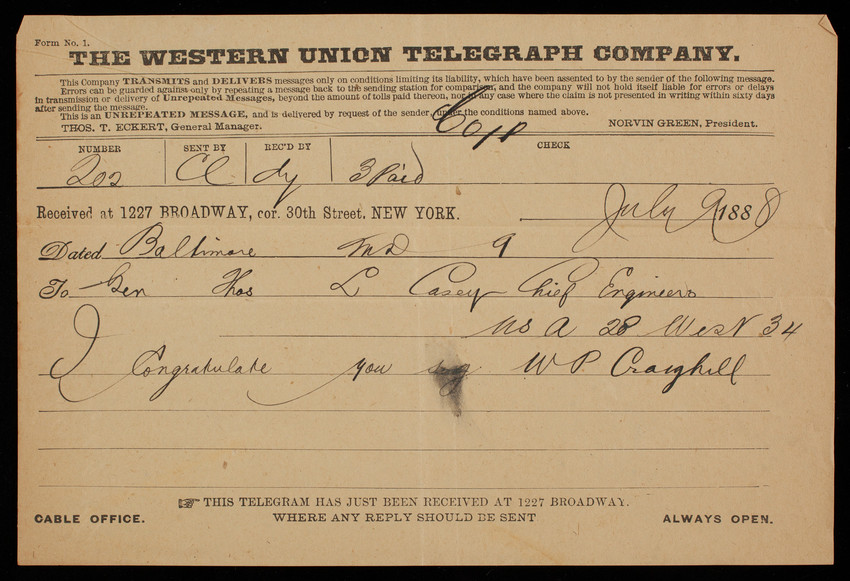 Form No. 1.
THE WESTERN UNION TELEGRAPH COMPANY.
This Company TRANSMITS and DELIVERS messages only on conditions limiting its liability, which have been assented to by the sender of the following message.
Errors can be guarded against only by repeating a message back to the sending station for comparison, and the company will not hold itself liable for errors or delays
in transmission or delivery of Unrepeated Messages, beyond the amount of tolls paid thereon, nor in any case where the claim is not presented in writing within sixty days
after sending the message.
This is an UNREPEATED MESSAGE, and is delivered by request of the sender, under the conditions named above.
THOS. T. ECKERT, General Manager. NORVIN GREEN, President.
Copy
NUMBER SENT BY REC'D BY CHECK
202 Cl dy 3 Paid
Received at 1227 BROADWAY, cor. 30th Street, NEW YORK. July 9 1888
Dated Baltimore Md 9
To Gen Thos L Casey Chief Engineers
USA 28 West 34
I Congratulate you W P. Craighill
THIS TELEGRAM HAS JUST BEEN RECEIVED AT 1227 BROADWAY.
CABLE OFFICE. WHERE ANY REPLY SHOULD BE SENT ALWAYS OPEN.